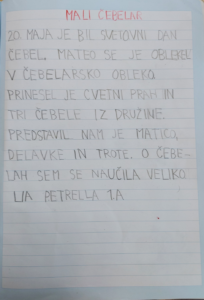 MALI ČEBELAR
20. MAJA JE BIL SVETOVNI DAN
ČEBEL. MATEO SE JE OBLEKEL
V ČEBELARSKO OBLEKO.
PRINESEL JE CVETNI PRAH IN
TRI ČEBELE IZ DRUŽINE.
PREDSTAVIL NAM JE MATICO,
DELAVKE IN TROTE. O ČEBE-
LAH SEM SE NAUČILA VELIKO
LIA PETRELLA 1.A